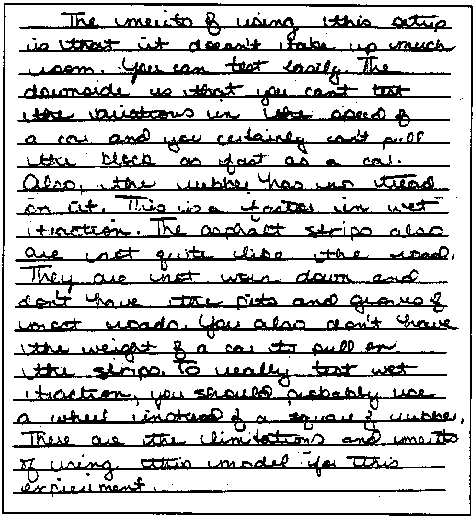 The merits of using this setup
is that it doesn't take up much
room. You can test easily. The
downside is that you can't test
the variations in the speed of
a car and you certainly can't pull
the block as fast as a car.
Also, the rubber has no tread
on it. This is a factor in wet
traction. The asphalt strips also
are not quite like the road.
They are not worn down and
don't have the pits and groves of
most roads. You also don't have
the weight of a car to pull on
the strips. To really test wet
traction, you should probably use
a wheel instead of a square of rubber.
These are the limitations and merits
of using this model for this
experiment.